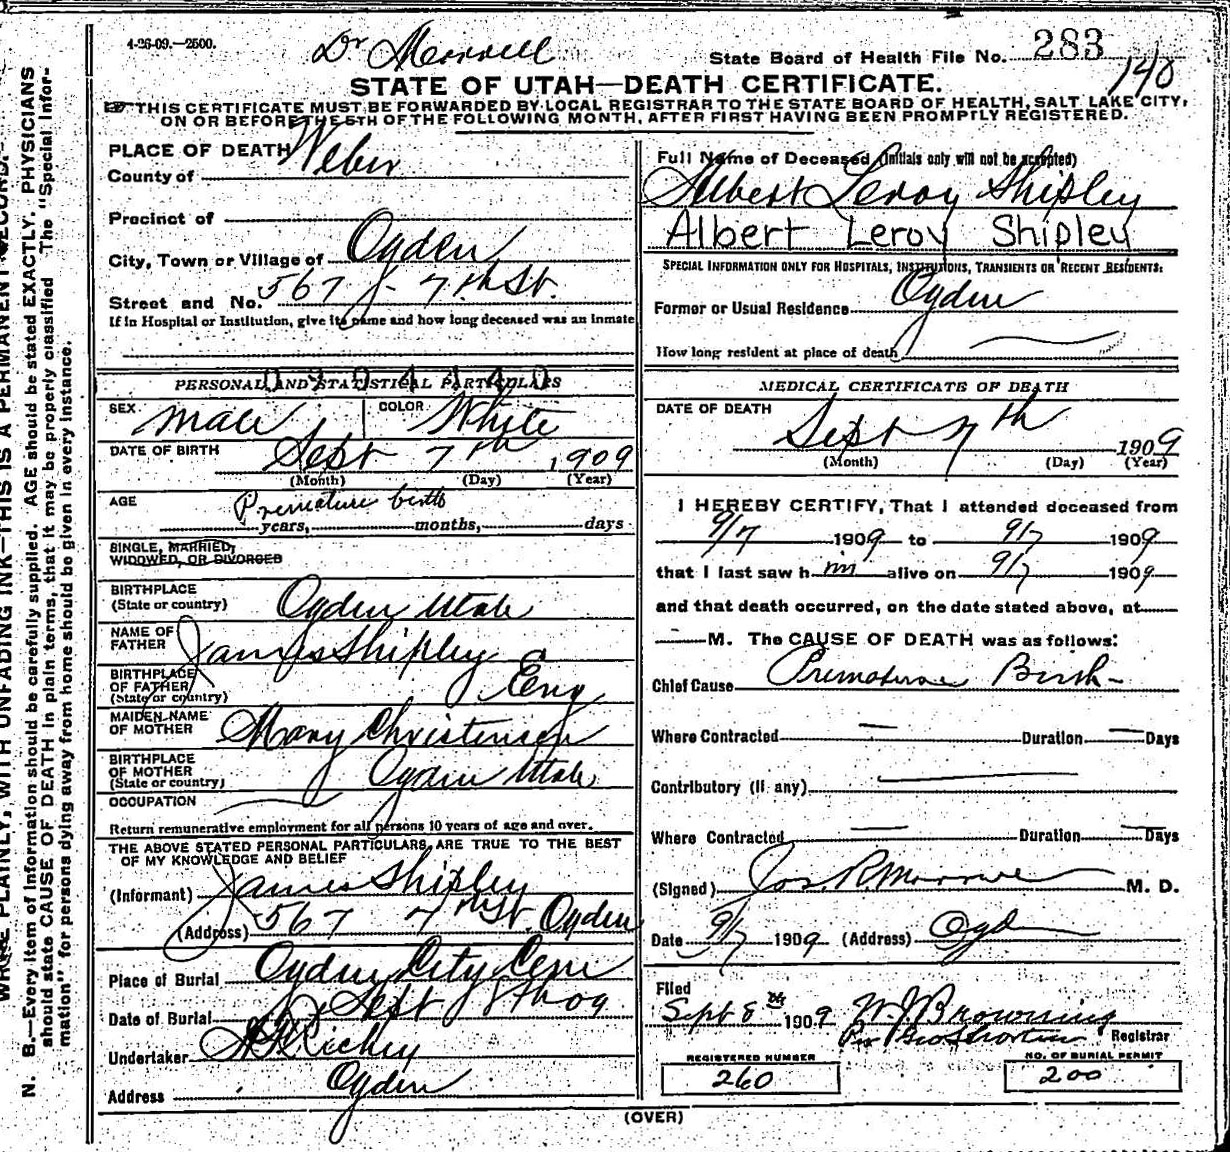 4-26-09.—2500.
Dr Morrell
State Board of Health File No. 283
140
STATE OF UTAH—DEATH CERTIFICATE.
THIS CERTIFICATE MUST BE FORWARDED BY LOCAL REGISTRAR TO THE STATE BOARD OF HEALTH, SALT LAKE CITY,
ON OR BEFORE THE 5TH OF THE FOLLOWING MONTH, AFTER FIRST HAVING BEEN PROMPTLY REGISTERED.
PLACE OF DEATH
County of Weber
Precinct of
City, Town or Village of Ogden
Street and No. 567 - 7th St.
If in Hospital or Institution, give its name and how long deceased was an inmate
PERSONAL AND STATISTICAL PARTICULARS
SEX male COLOR White
DATE OF BIRTH Sept 7th, 1909
(Month) (Day) (Year)
AGE Premature birth
years, months, days
SINGLE, MARRIED,
WIDOWED, OR DIVORCED
BIRTHPLACE
(State or country) Ogden Utah
NAME OF
FATHER James Shipley
BIRTHPLACE
OF FATHER
(State or country) Eng
MAIDEN NAME
OF MOTHER Mary Christensen
BIRTHPLACE
OF MOTHER
(State or country) Ogden Utah
OCCUPATION
Return remunerative employment for all persons 10 years of age and over.
THE ABOVE STATED PERSONAL PARTICULARS ARE TRUE TO THE BEST
OF MY KNOWLEDGE AND BELIEF
(Informant) James Shipley
(Address) 567 7th St. Ogden
Place of Burial Ogden City Cem
Date of Burial Sept 8th 09
Undertaker Richey
Address Ogden
Full Name of Deceased (Initials only will not be accepted)
Albert Leroy Shipley
Albert Leroy Shipley
SPECIAL INFORMATION ONLY FOR HOSPITALS, INSTITUTIONS, TRANSIENTS OR RECENT RESIDENTS:
Former or Usual Residence Ogden
How long resident at place of death
MEDICAL CERTIFICATE OF DEATH
DATE OF DEATH Sept 7th 1909
(Month) (Day) (Year)
I HEREBY CERTIFY, That I attended deceased from
9/7 1909 to 9/7 1909
that I last saw him alive on 9/7 1909
and that death occurred, on the date stated above, at
M. The CAUSE OF DEATH was as follows:
Chief Cause Premature Birth
Where Contracted Duration Days
Contributory (if any)
Where Contracted Duration Days
(Signed) Jos. R. Morrell M. D.
Date 9/7 1909 (Address) Ogden
Filed
Sept 8th 1909 W. J. Browning
Per Geo Shorten Registrar
REGISTERED NUMBER
260
NO. OF BURIAL PERMIT
200
(OVER)
WRITE PLAINLY, WITH UNFADING INK—THIS IS A PERMANENT RECORD.
N. B.—Every item of information should be carefully supplied. AGE should be stated EXACTLY. PHYSICIANS
should state CAUSE OF DEATH in plain terms, that it may be properly classified. The "Special Infor-
mation" for persons dying away from home should be given in every instance.